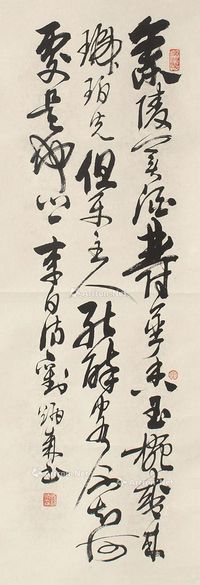 蘭陵美酒鬱金香玉椀盛來
琥珀光但使主人能醉客不知何
處是他鄉 李白詩 劉